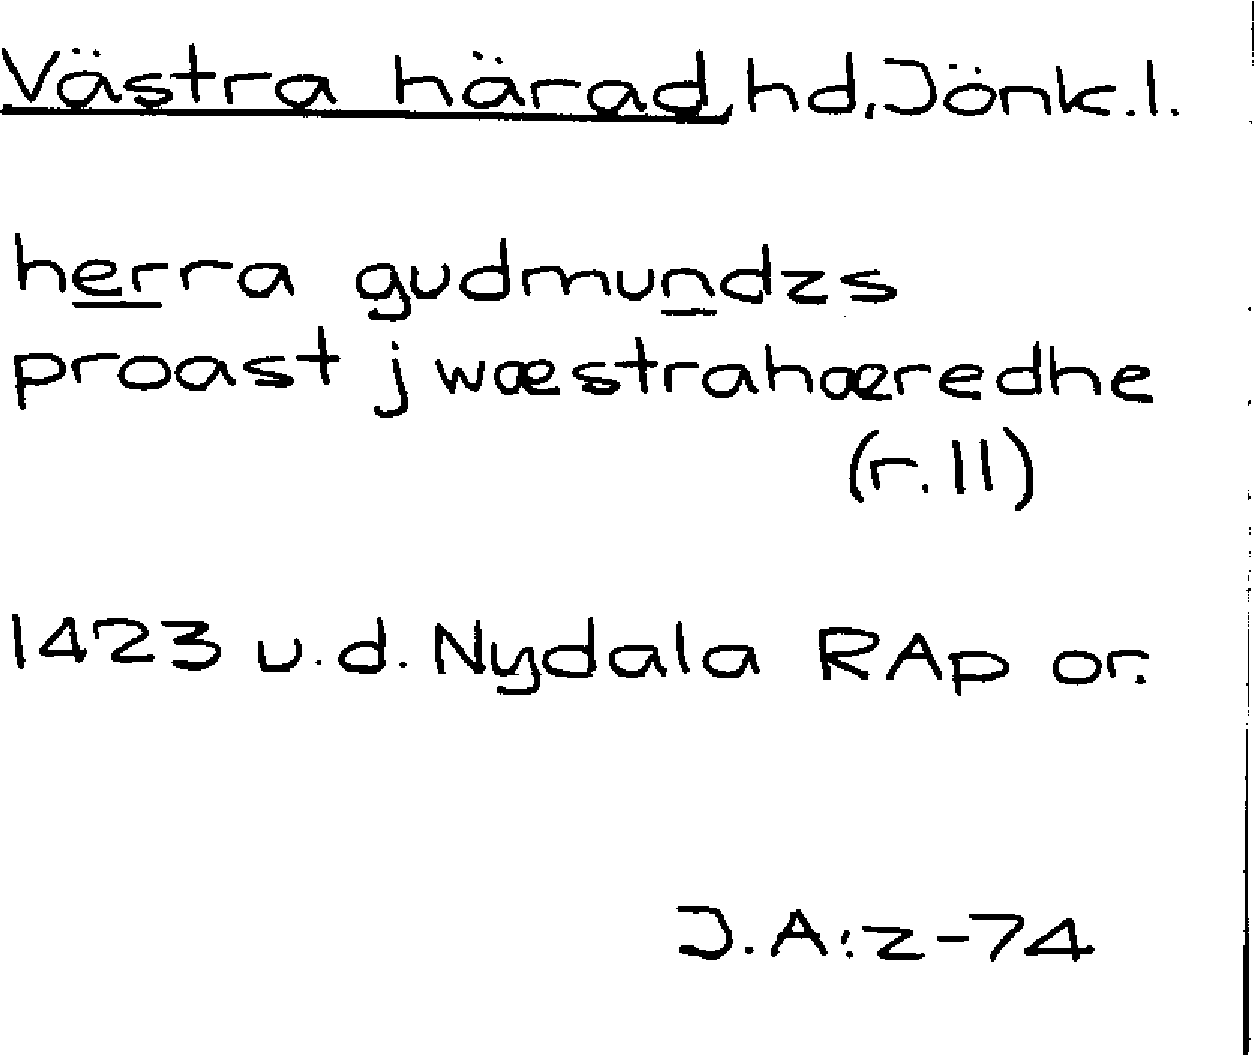 Västra härad, hd, Jönk.l.
herra gudmundzs
proast j wæstrahæredhe
(r.11)
1423 u.d. Nydala RAp or.
J.A:z-74